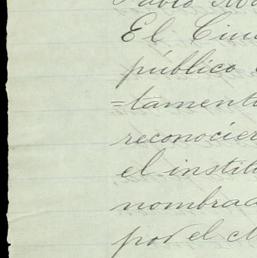 Pablo
El Ciu
público
=tament
reconocier
el institu
nombrad
por el